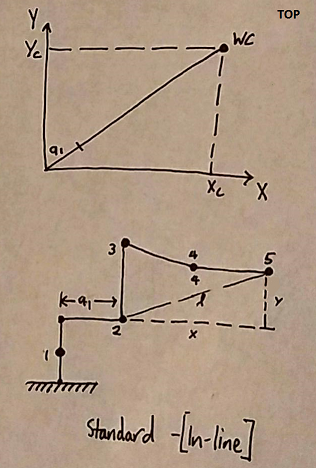 TOP
Y
Yc
WC
a₁
Xc
X
3
4
4
5
a₁
l
Y
2
X
1
Standard -[In-line]